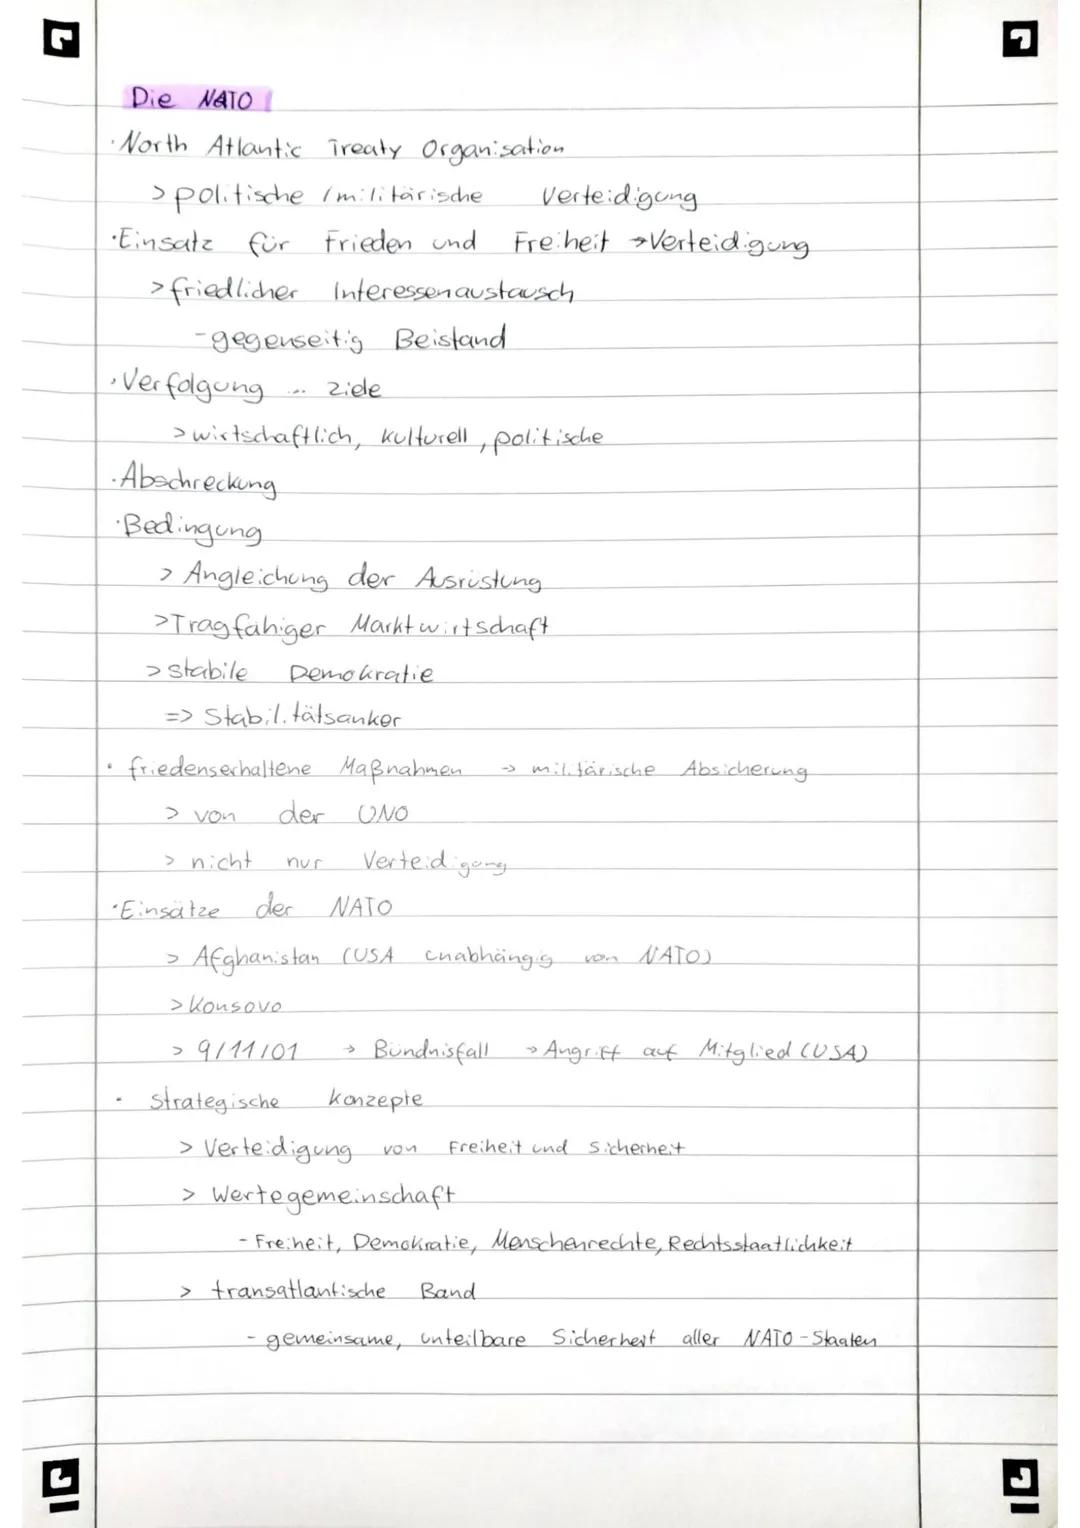 Die NATO
·North Atlantic Treaty Organisation
> politische / militärische Verteidigung
·Einsatz für Frieden und Freiheit →Verteidigung
> friedlicher Interessenaustausch
- gegenseitig Beistand
·Verfolgung ... Ziele
> wirtschaftlich, kulturell, politische
·Abschreckung
·Bedingung
> Angleichung der Ausrüstung
> Tragfähiger Marktwirtschaft
> stabile Demokratie
=> Stabilitätsanker
· friedenserhaltene Maßnahmen → militärische Absicherung
> von der UNO
> nicht nur Verteidigung
·Einsätze der NATO
> Afghanistan (USA unabhängig von NATO)
> Konsovo
> 9/11/01 → Bündnisfall → Angriff auf Mitglied (USA)
· strategische Konzepte
> Verteidigung von Freiheit und Sicherheit
> Wertegemeinschaft
- Freiheit, Demokratie, Menschenrechte, Rechtsstaatlichkeit
> transatlantische Band
- gemeinsame, unteilbare Sicherheit aller NATO-Staaten